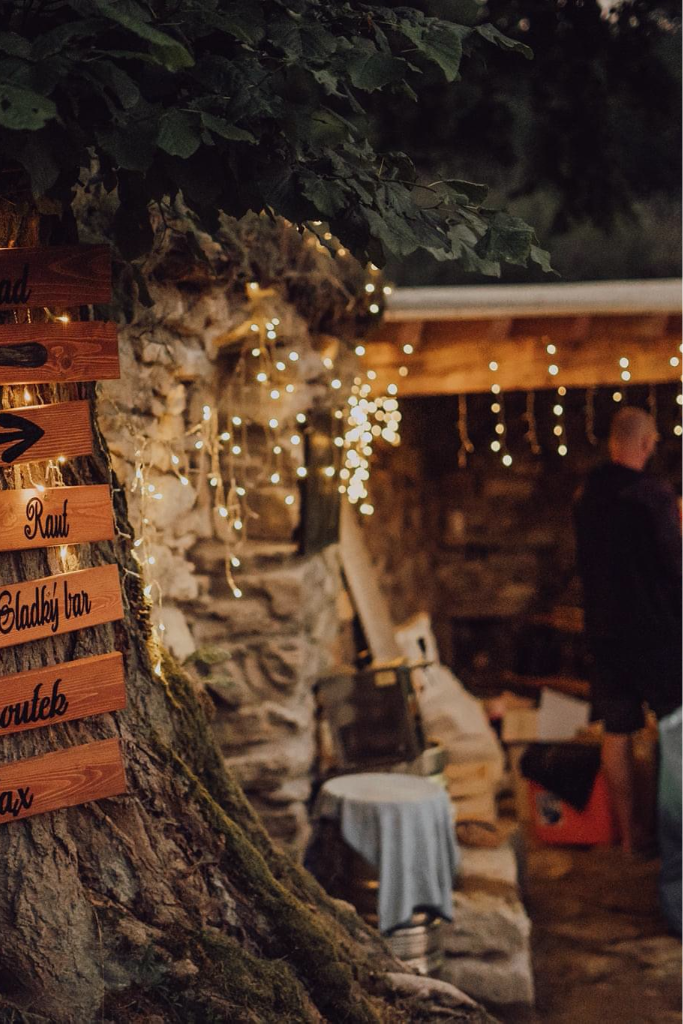 ad
Raut
Sladký bar
outek
ax